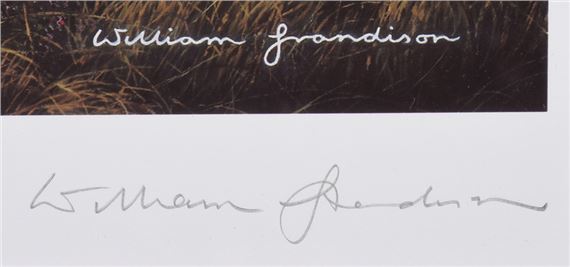 William Grandison
William Grandison